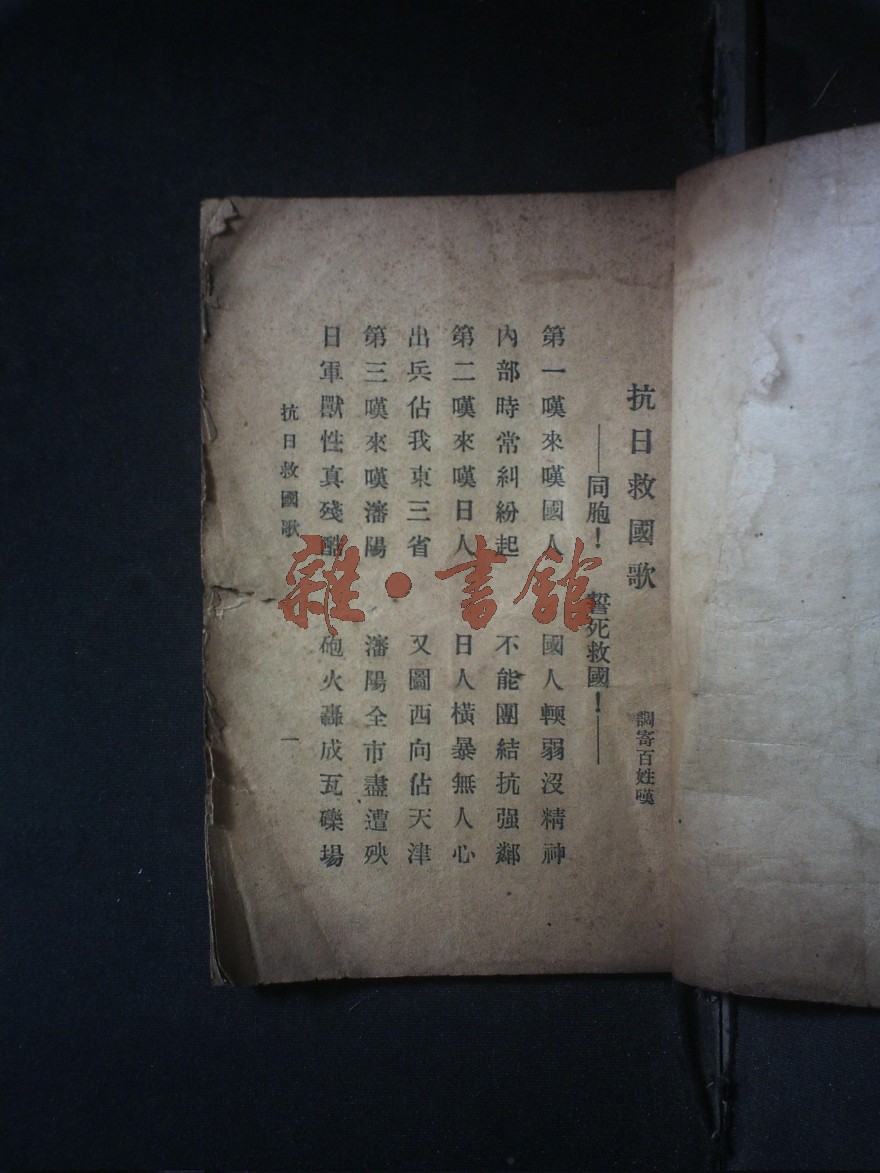 抗日救國歌
調寄百姓嘆
——同胞！ 誓死救國！——
第一嘆來嘆國人 國人輭弱沒精神
內部時常糾紛起 不能團結抗强鄰
第二嘆來嘆日人 日人橫暴無人心
出兵佔我東三省 又圖西向佔天津
第三嘆來嘆瀋陽 瀋陽全市盡遭殃
日軍獸性真殘酷 砲火轟成瓦礫場
抗日救國歌 一
雜·書館